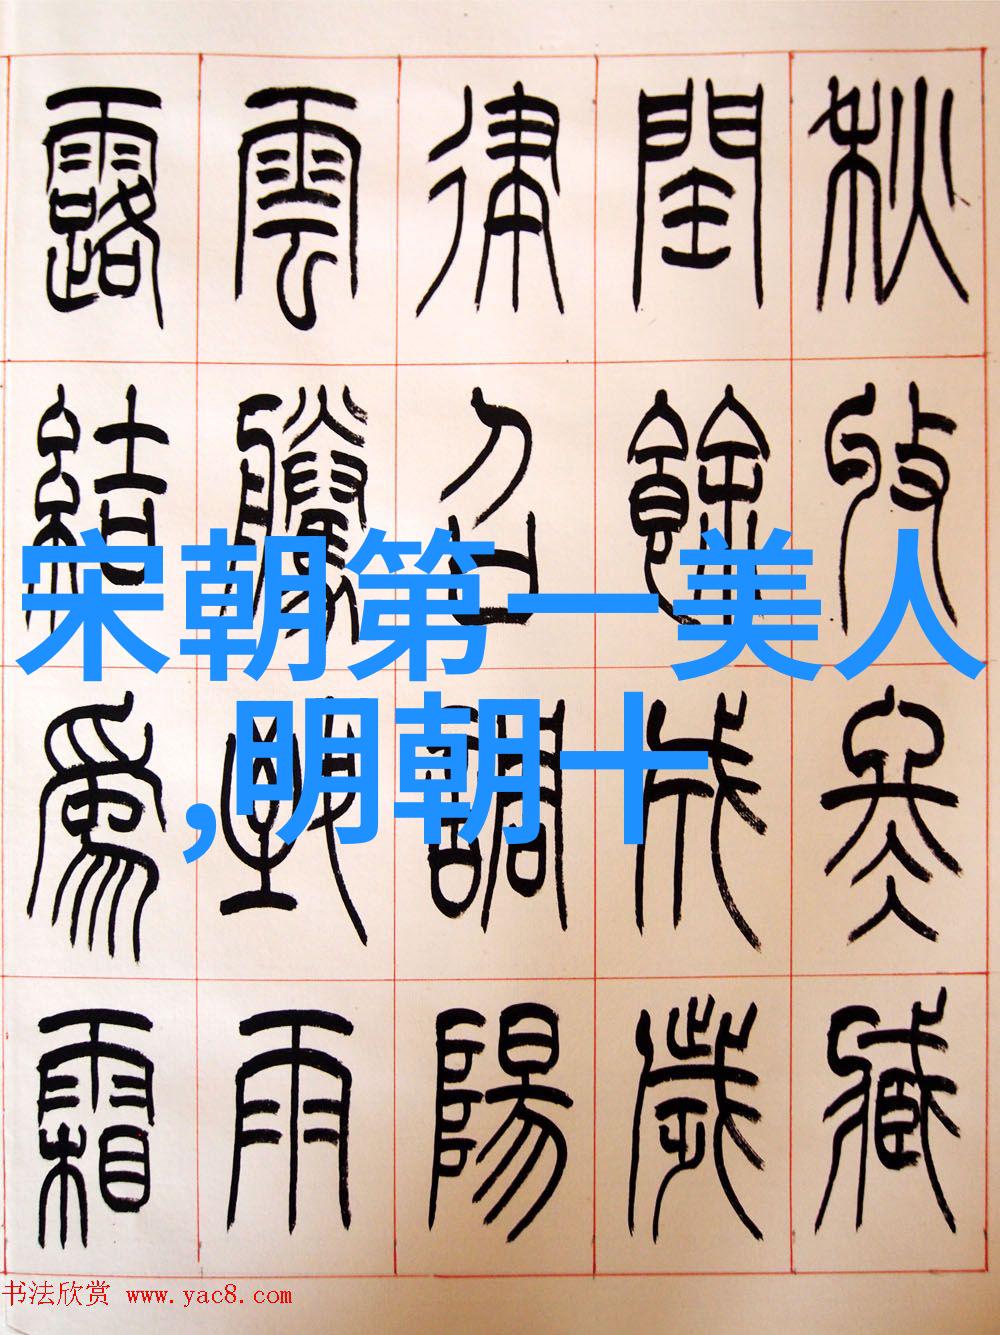 秋收冬藏
閏餘成歲
律召調陽
雲騰致雨
露結爲霜
宋朝第一美人
,明朝十
书法欣赏 www.yac8.com